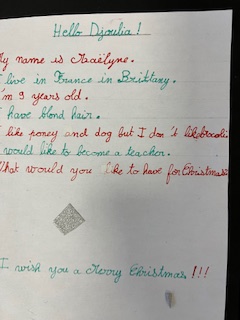 Hello Djoulia !
My name is Maëlyne.
I live in France in Brittany.
I'm 9 years old.
I have blond hair.
I like poney and dog but I don't like brocoli.
I would like to become a teacher.
What would you like to have for Christmas?
I wish you a Merry Christmas !!!